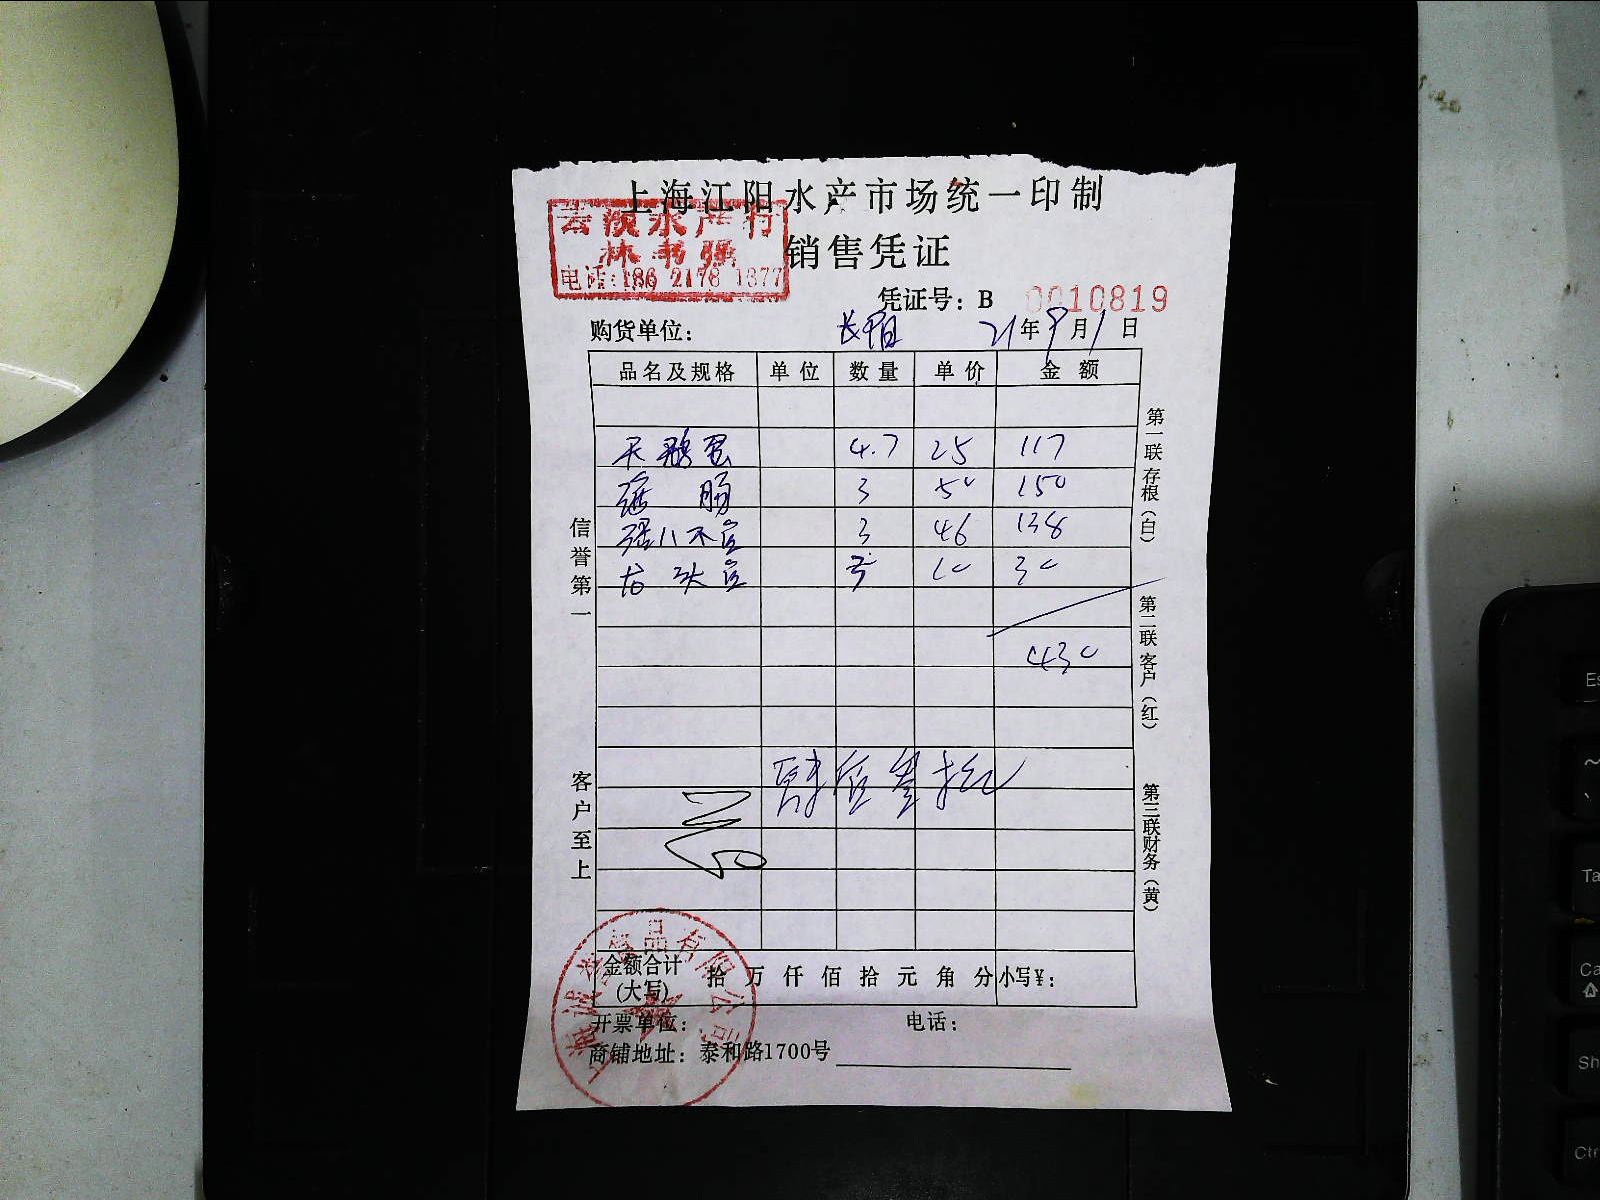 上海江阳水产市场统一印制
水产行
林书强
电话:186 2178 1377
销售凭证
凭证号：B 0010819
购货单位： 长阳 21年9月1日
品名及规格 单位 数量 单价 金额
天鹅蛋 4.7 25 117
海肠 3 50 150
3 46 138
龙头 3 10 30
430
肆佰叁拾
信誉第一
客户至上
第一联存根（白）
第二联客户（红）
第三联财务（黄）
金额合计（大写） 拾万仟佰拾元角分 小写￥：
开票单位： 电话：
商铺地址：泰和路1700号
食品有限公司
Es
~
Ta
Ca
Sh
Ctr